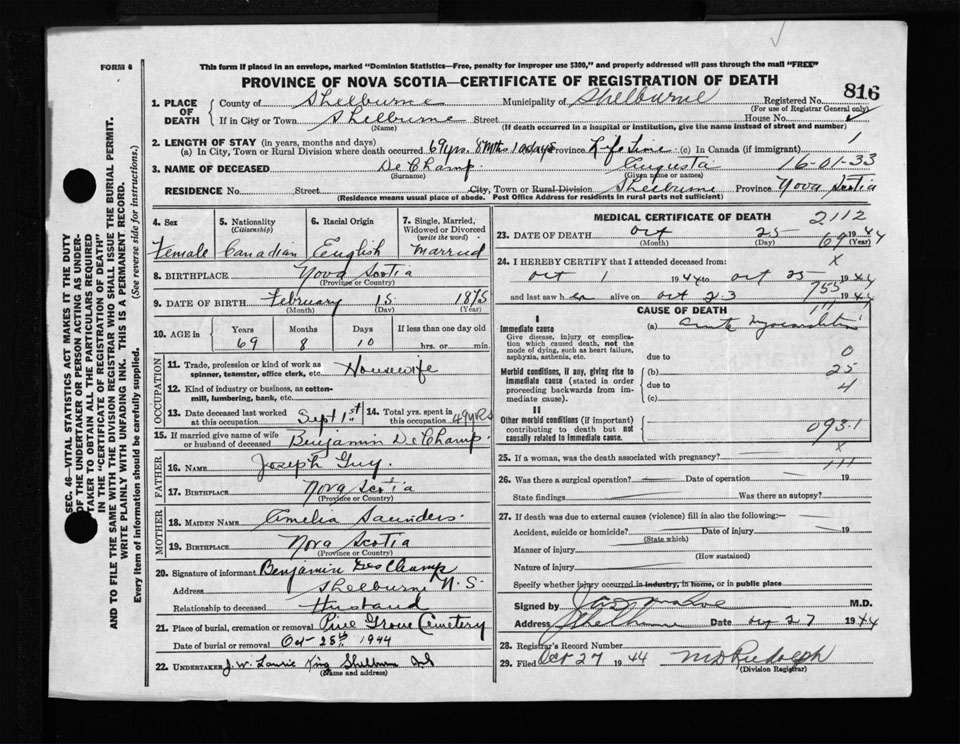 FORM 6
This form if placed in an envelope, marked "Dominion Statistics—Free, penalty for improper use $300," and properly addressed will pass through the mail "FREE"
PROVINCE OF NOVA SCOTIA—CERTIFICATE OF REGISTRATION OF DEATH
816
1. PLACE OF DEATH
County of Shelburne Municipality of Shelburne Registered No.
(For use of Registrar General only)
If in City or Town Shelburne Street House No.
(Name) (If death occurred in a hospital or institution, give the name instead of street and number)
2. LENGTH OF STAY (in years, months and days)
(a) In City, Town or Rural Division where death occurred 69yrs. 8Mths 10days Province Life Time (c) In Canada (if immigrant) 1
3. NAME OF DECEASED DeChamp Augusta 16-01-33
(Surname) (Given name or names)
RESIDENCE No. Street City, Town or Rural Division Shelburne Province Nova Scotia
(Residence means usual place of abode. Post Office Address for residents in rural parts not sufficient)
4. Sex Female
5. Nationality (Citizenship) Canadian
6. Racial Origin English
7. Single, Married, Widowed or Divorced (write the word) Married
8. BIRTHPLACE Nova Scotia
(Province or Country)
9. DATE OF BIRTH February 15 1875
(Month) (Day) (Year)
10. AGE in Years Months Days If less than one day old
69 8 10 hrs. or min.
OCCUPATION
11. Trade, profession or kind of work as spinner, teamster, office clerk, etc. Housewife
12. Kind of industry or business, as cotton-mill, lumbering, bank, etc.
13. Date deceased last worked at this occupation Sept 1st
14. Total yrs. spent in this occupation 49yrs
15. If married give name of wife or husband of deceased Benjamin DeChamp.
FATHER
16. NAME Joseph Guy.
17. BIRTHPLACE Nova Scotia
(Province or Country)
MOTHER
18. MAIDEN NAME Amelia Saunders.
19. BIRTHPLACE Nova Scotia
(Province or Country)
20. Signature of informant Benjamin DesChamp
Address Shelburne N.S.
Relationship to deceased Husband
21. Place of burial, cremation or removal Pine Grove Cemetery
Date of burial or removal Oct 28th 1944
22. UNDERTAKER J.W. King Shelburne
(Name and address)
MEDICAL CERTIFICATE OF DEATH 2112
23. DATE OF DEATH Oct 25 1944
(Month) (Day) 69 (Year)
24. I HEREBY CERTIFY that I attended deceased from: X
Oct 1 1944 to Oct 25 1944
755
and last saw her alive on Oct 23 1944
CAUSE OF DEATH 111
I
Immediate cause
Give disease, injury or complication which caused death, not the mode of dying, such as heart failure, asphyxia, asthenia, etc.
(a) Acute Myocarditis
due to 0
Morbid conditions, if any, giving rise to immediate cause (stated in order proceeding backwards from immediate cause).
(b) 25
due to 4
(c)
II
Other morbid conditions (if important) contributing to death but not causally related to immediate cause.
093.1
25. If a woman, was the death associated with pregnancy? X
111
26. Was there a surgical operation? Date of operation 19
State findings Was there an autopsy?
27. If death was due to external causes (violence) fill in also the following:
Accident, suicide or homicide? Date of injury 19
(State which)
Manner of injury
(How sustained)
Nature of injury
Specify whether injury occurred in industry, in home, or in public place
Signed by M.D.
Address Shelburne Date Oct 27 1944
28. Registrar's Record Number
29. Filed Oct 27 1944 Rudolph
(Division Registrar)
SEC. 46—VITAL STATISTICS ACT MAKES IT THE DUTY
OF THE UNDERTAKER OR PERSON ACTING AS UNDERTAKER TO OBTAIN ALL THE PARTICULARS REQUIRED
IN THE "CERTIFICATE OF REGISTRATION OF DEATH"
AND TO FILE THE SAME WITH THE DIVISION REGISTRAR WHO SHALL ISSUE THE BURIAL PERMIT.
WRITE PLAINLY WITH UNFADING INK. THIS IS A PERMANENT RECORD.
Every item of information should be carefully supplied. (See reverse side for instructions.)